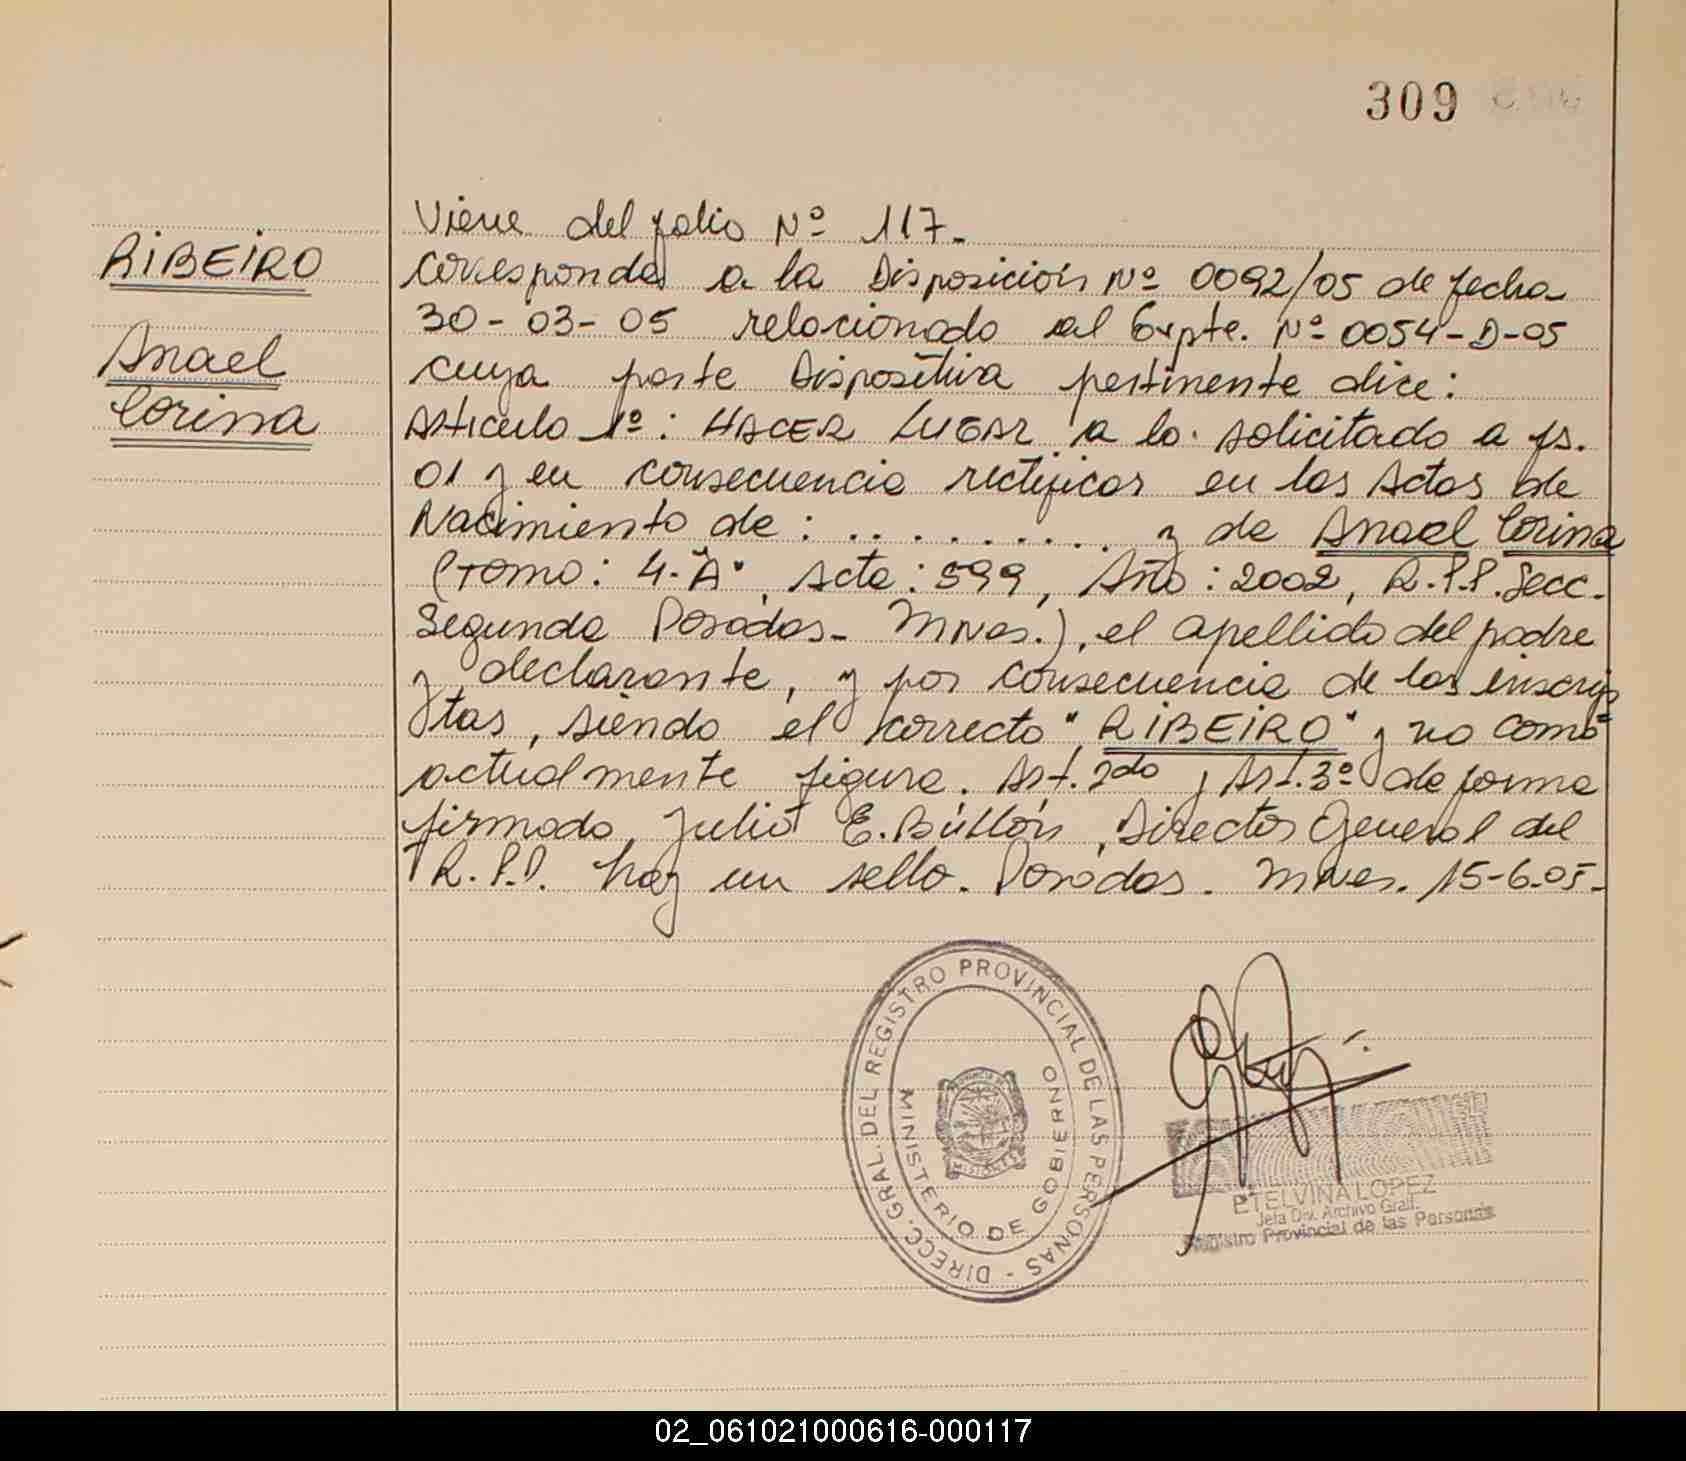 309
RIBEIRO
Anael
Corina
Viene del folio Nº 117.-
Corresponde a la Disposición Nº 0092/05 de fecha
30-03-05 relacionado al Expte. Nº 0054-D-05
cuya parte Dispositiva pertinente dice:
Artículo 1º: HACER LUGAR a lo solicitado a fs.
01 y en consecuencia rectificar en las Actas de
Nacimiento de: .......... y de Anael Corina
(Tomo: 4-"A", Acta: 599, Año: 2002, R.P.P. Secc.
Segunda Posadas- Mnes.), el apellido del padre
y declarante, y por consecuencia de las inscrip
tas, siendo el correcto "RIBEIRO" y no como
actualmente figura. Art. 2do y Art. 3º de forma
firmado Julio E. Bullón, Director General del
R.P.P. hay un sello. Posadas. Mnes. 15-6-05.-
DIRECC. GRAL. DEL REGISTRO PROVINCIAL DE LAS PERSONAS -
MINISTERIO DE GOBIERNO
PROVINCIA DE
MISIONES
ETELVINA LOPEZ
Jefa Div. Archivo Gral.
Registro Provincial de las Personas
02_061021000616-000117